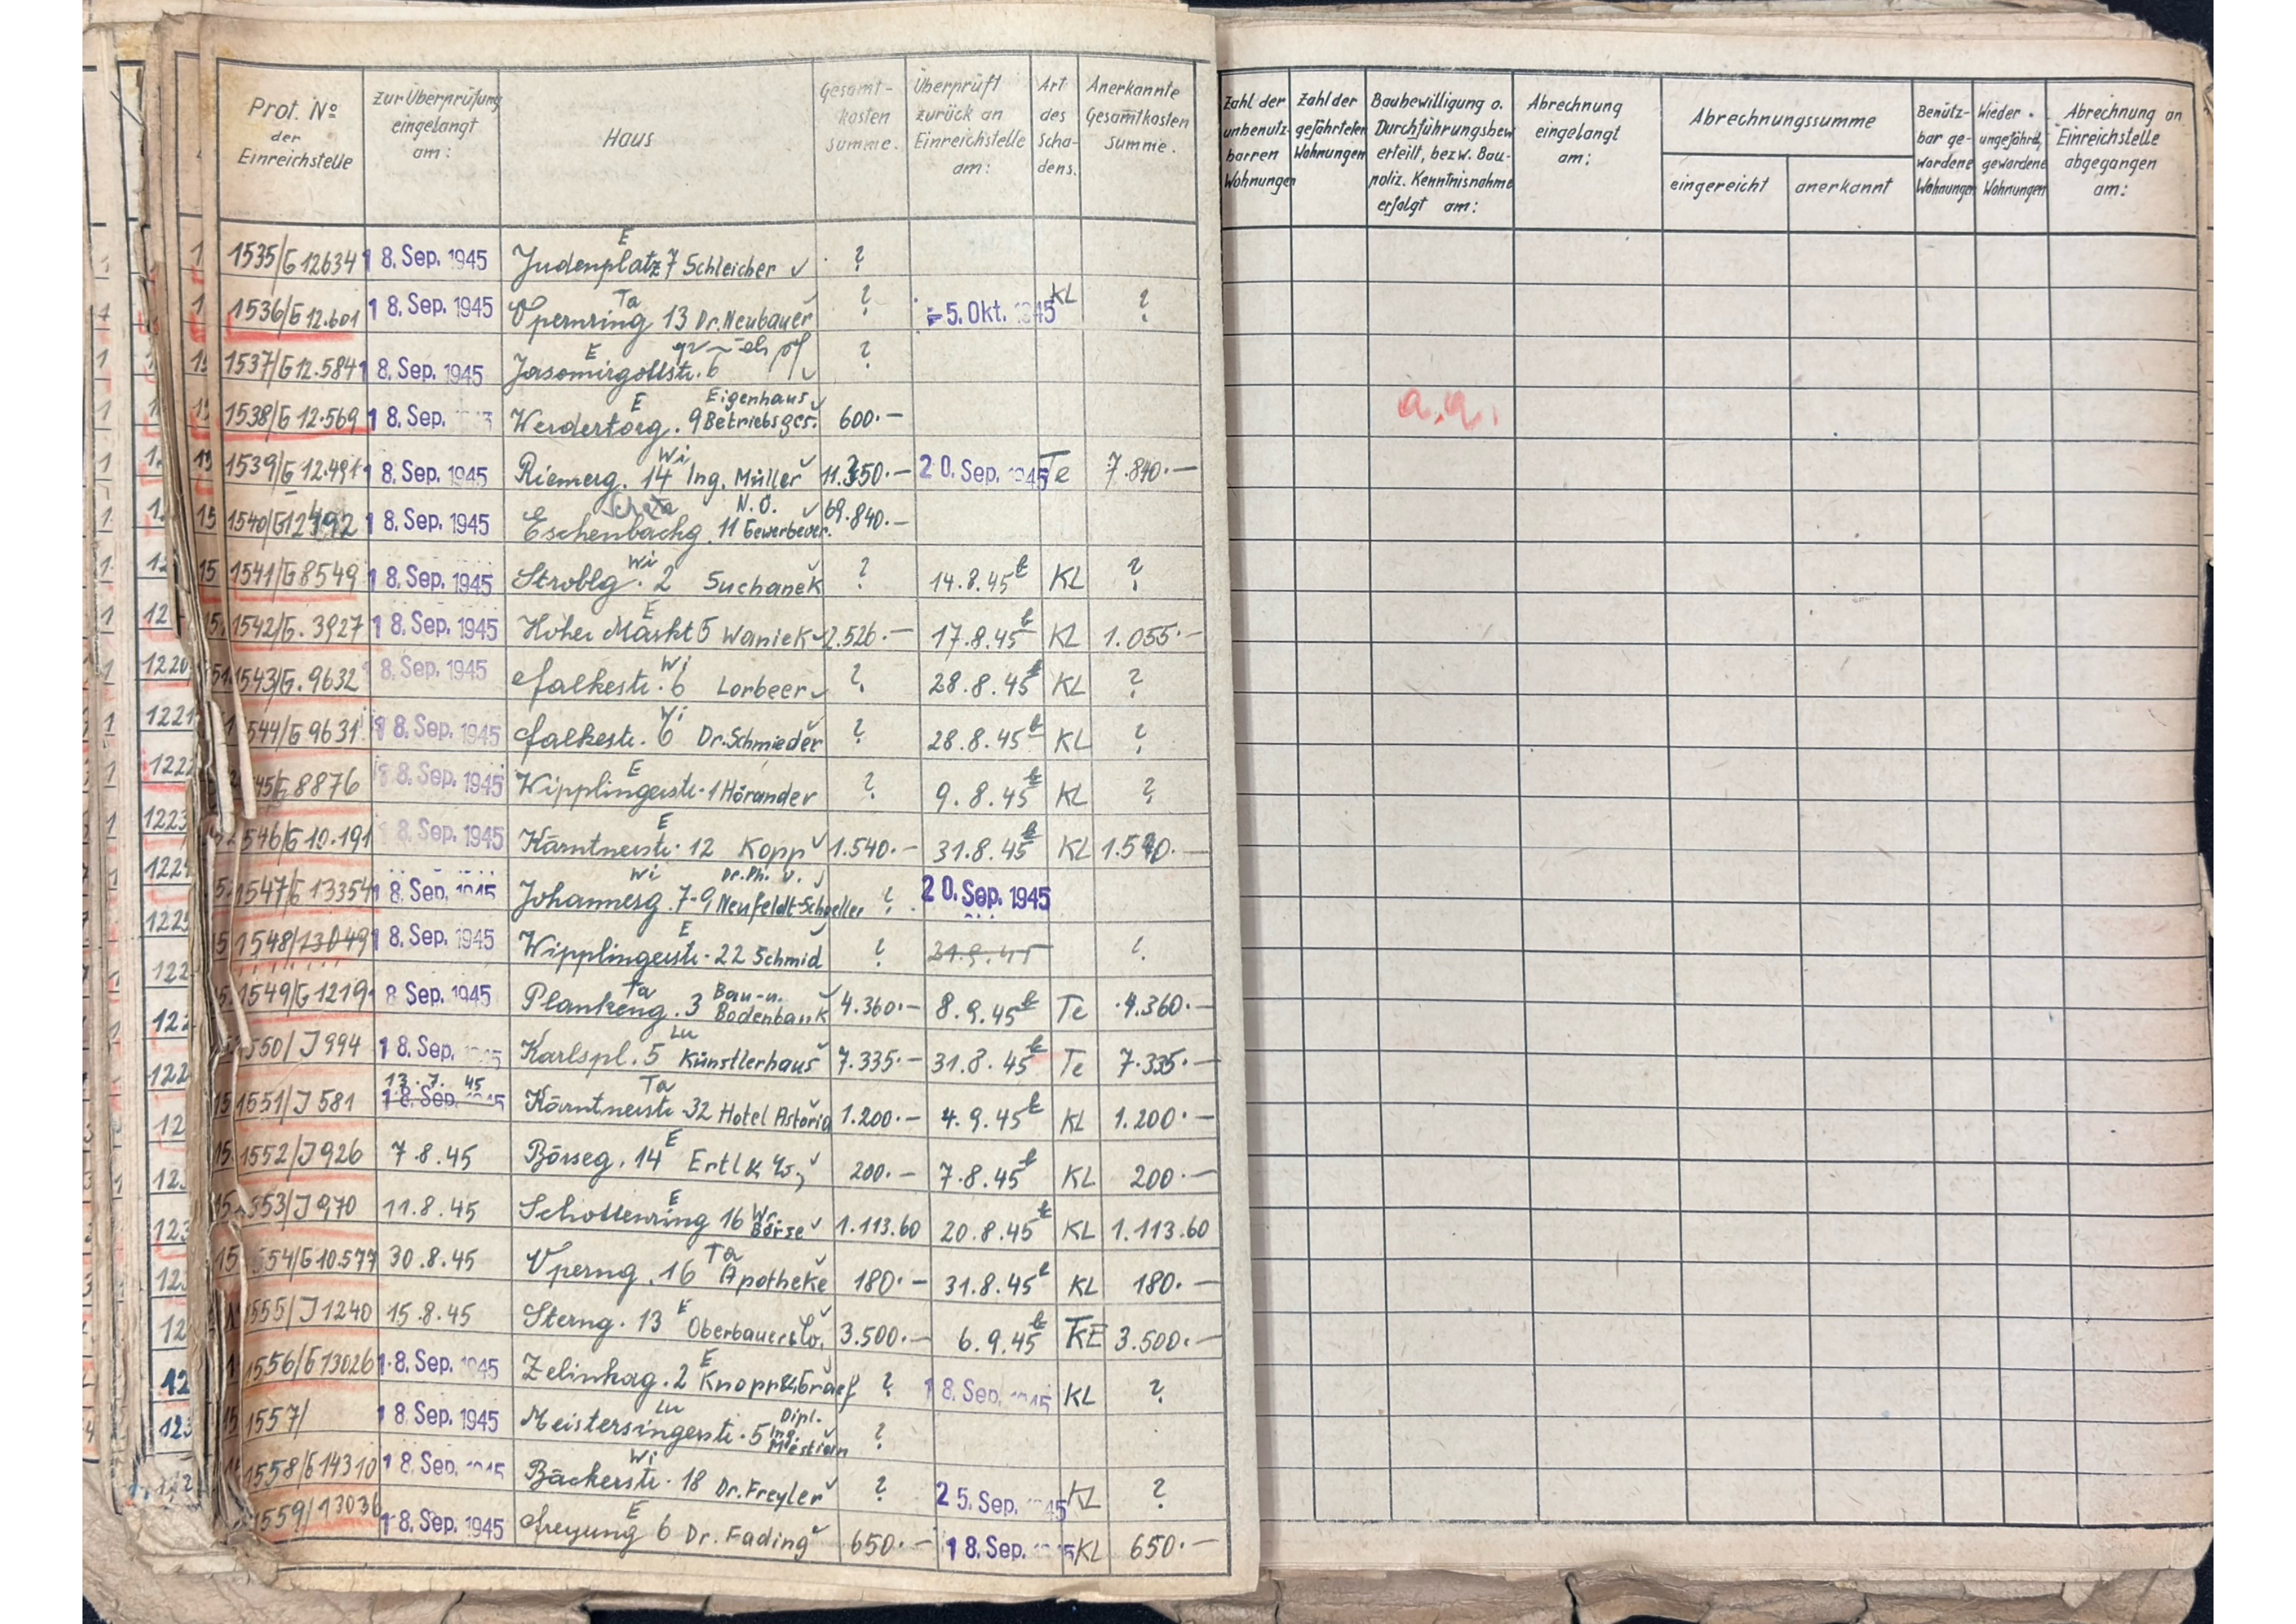 Prot. No der Einreichstelle | zur Überprüfung eingelangt am: | Haus | Gesamt-kosten summe. | Überprüft zurück an Einreichstelle am: | Art des Schadens. | Anerkannte Gesamtkosten Summe. | Zahl der unbenutz-barren Wohnungen | Zahl der gefährteten Wohnungen | Baubewilligung o. Durchführungsbew erteilt, bezw. Bau-poliz. Kenntnisnahme erfolgt am: | Abrechnung eingelangt am: | Abrechnungssumme eingereicht | anerkannt | Benütz-bar ge-wordene Wohnungen | Wieder ungefährd. gewordene Wohnungen | Abrechnung an Einreichstelle abgegangen am:
1535/G 12634 18. Sep. 1945 Judenplatz 7 E Schleicher ?
1536/G 12.601 18. Sep. 1945 Opernring 13 Ta Dr. Neubauer ? -5. Okt. 1945 KL ?
1537/G 12.584 18. Sep. 1945 Jasomirgottstr. 6 E ?
1538/G 12.569 18. Sep. Werdertorg. 9 E Eigenhaus Betriebsges. 600.— a.a.
1539/G 12.491 18. Sep. 1945 Riemerg. 14 Wi Ing. Müller 11.350.— 20. Sep. 1945 Te 7.840.—
1540/G 12492 18. Sep. 1945 Eschenbachg. 11 N.Ö. Gewerbever. 69.840.—
1541/G 8549 18. Sep. 1945 Stroblg. 2 Wi Suchanek ? 14.8.45 KL ?
1542/G. 3927 18. Sep. 1945 Hoher Markt 5 E Waniek 2.526.— 17.8.45 KL 1.055.—
1543/G. 9632 18. Sep. 1945 Falkestr. 6 Wi Lorbeer ? 28.8.45 KL ?
1544/G 9631 18. Sep. 1945 Falkestr. 6 Wi Dr. Schmieder ? 28.8.45 KL ?
45/G 8876 18. Sep. 1945 Wipplingerstr. 1 E Hörander ? 9.8.45 KL ?
546/G 10.191 18. Sep. 1945 Kärntnerstr. 12 E Kopp 1.540.— 31.8.45 KL 1.540.—
1547/G 13354 18. Sep. 1945 Johannesg. 7-9 Wi Dr. Ph. v. Neufeldt-Schoeller ? 20. Sep. 1945
1548/13049 18. Sep. 1945 Wipplingerstr. 22 E Schmid ? 31.8.45 ?
1549/G 1219 18. Sep. 1945 Plankeng. 3 Ta Bau-u. Bodenbank 4.360.— 8.9.45 Te 4.360.—
550/J 994 18. Sep. 1945 Karlspl. 5 Lu Künstlerhaus 7.335.— 31.8.45 Te 7.335.—
1551/J 581 13.7.45 18. Sep. 1945 Kärntnerstr. 32 Ta Hotel Astoria 1.200.— 4.9.45 KL 1.200.—
1552/J 926 7.8.45 Börseg. 14 E Ertl 200.— 7.8.45 KL 200.—
553/J 970 11.8.45 Schottenring 16 E Wr. Börse 1.113.60 20.8.45 KL 1.113.60
554/G 10.577 30.8.45 Operng. 16 Ta Apotheke 180.— 31.8.45 KL 180.—
1555/J 1240 15.8.45 Sterng. 13 E Oberbauer & Co. 3.500.— 6.9.45 KE 3.500.—
1556/G 13026 18. Sep. 1945 Zelinkag. 2 E Knopp & Graef ? 18. Sep. 1945 KL ?
1557/ 18. Sep. 1945 Meistersingerstr. 5 Lu Dipl. Ing. ?
1558/G 14310 18. Sep. 1945 Bäckerstr. 18 Wi Dr. Freyler ? 25. Sep. 1945 KL ?
1559/13036 18. Sep. 1945 Freyung 6 E Dr. Fading 650.— 18. Sep. 1945 KL 650.—
1220
1221
1222
1223
1224
1225